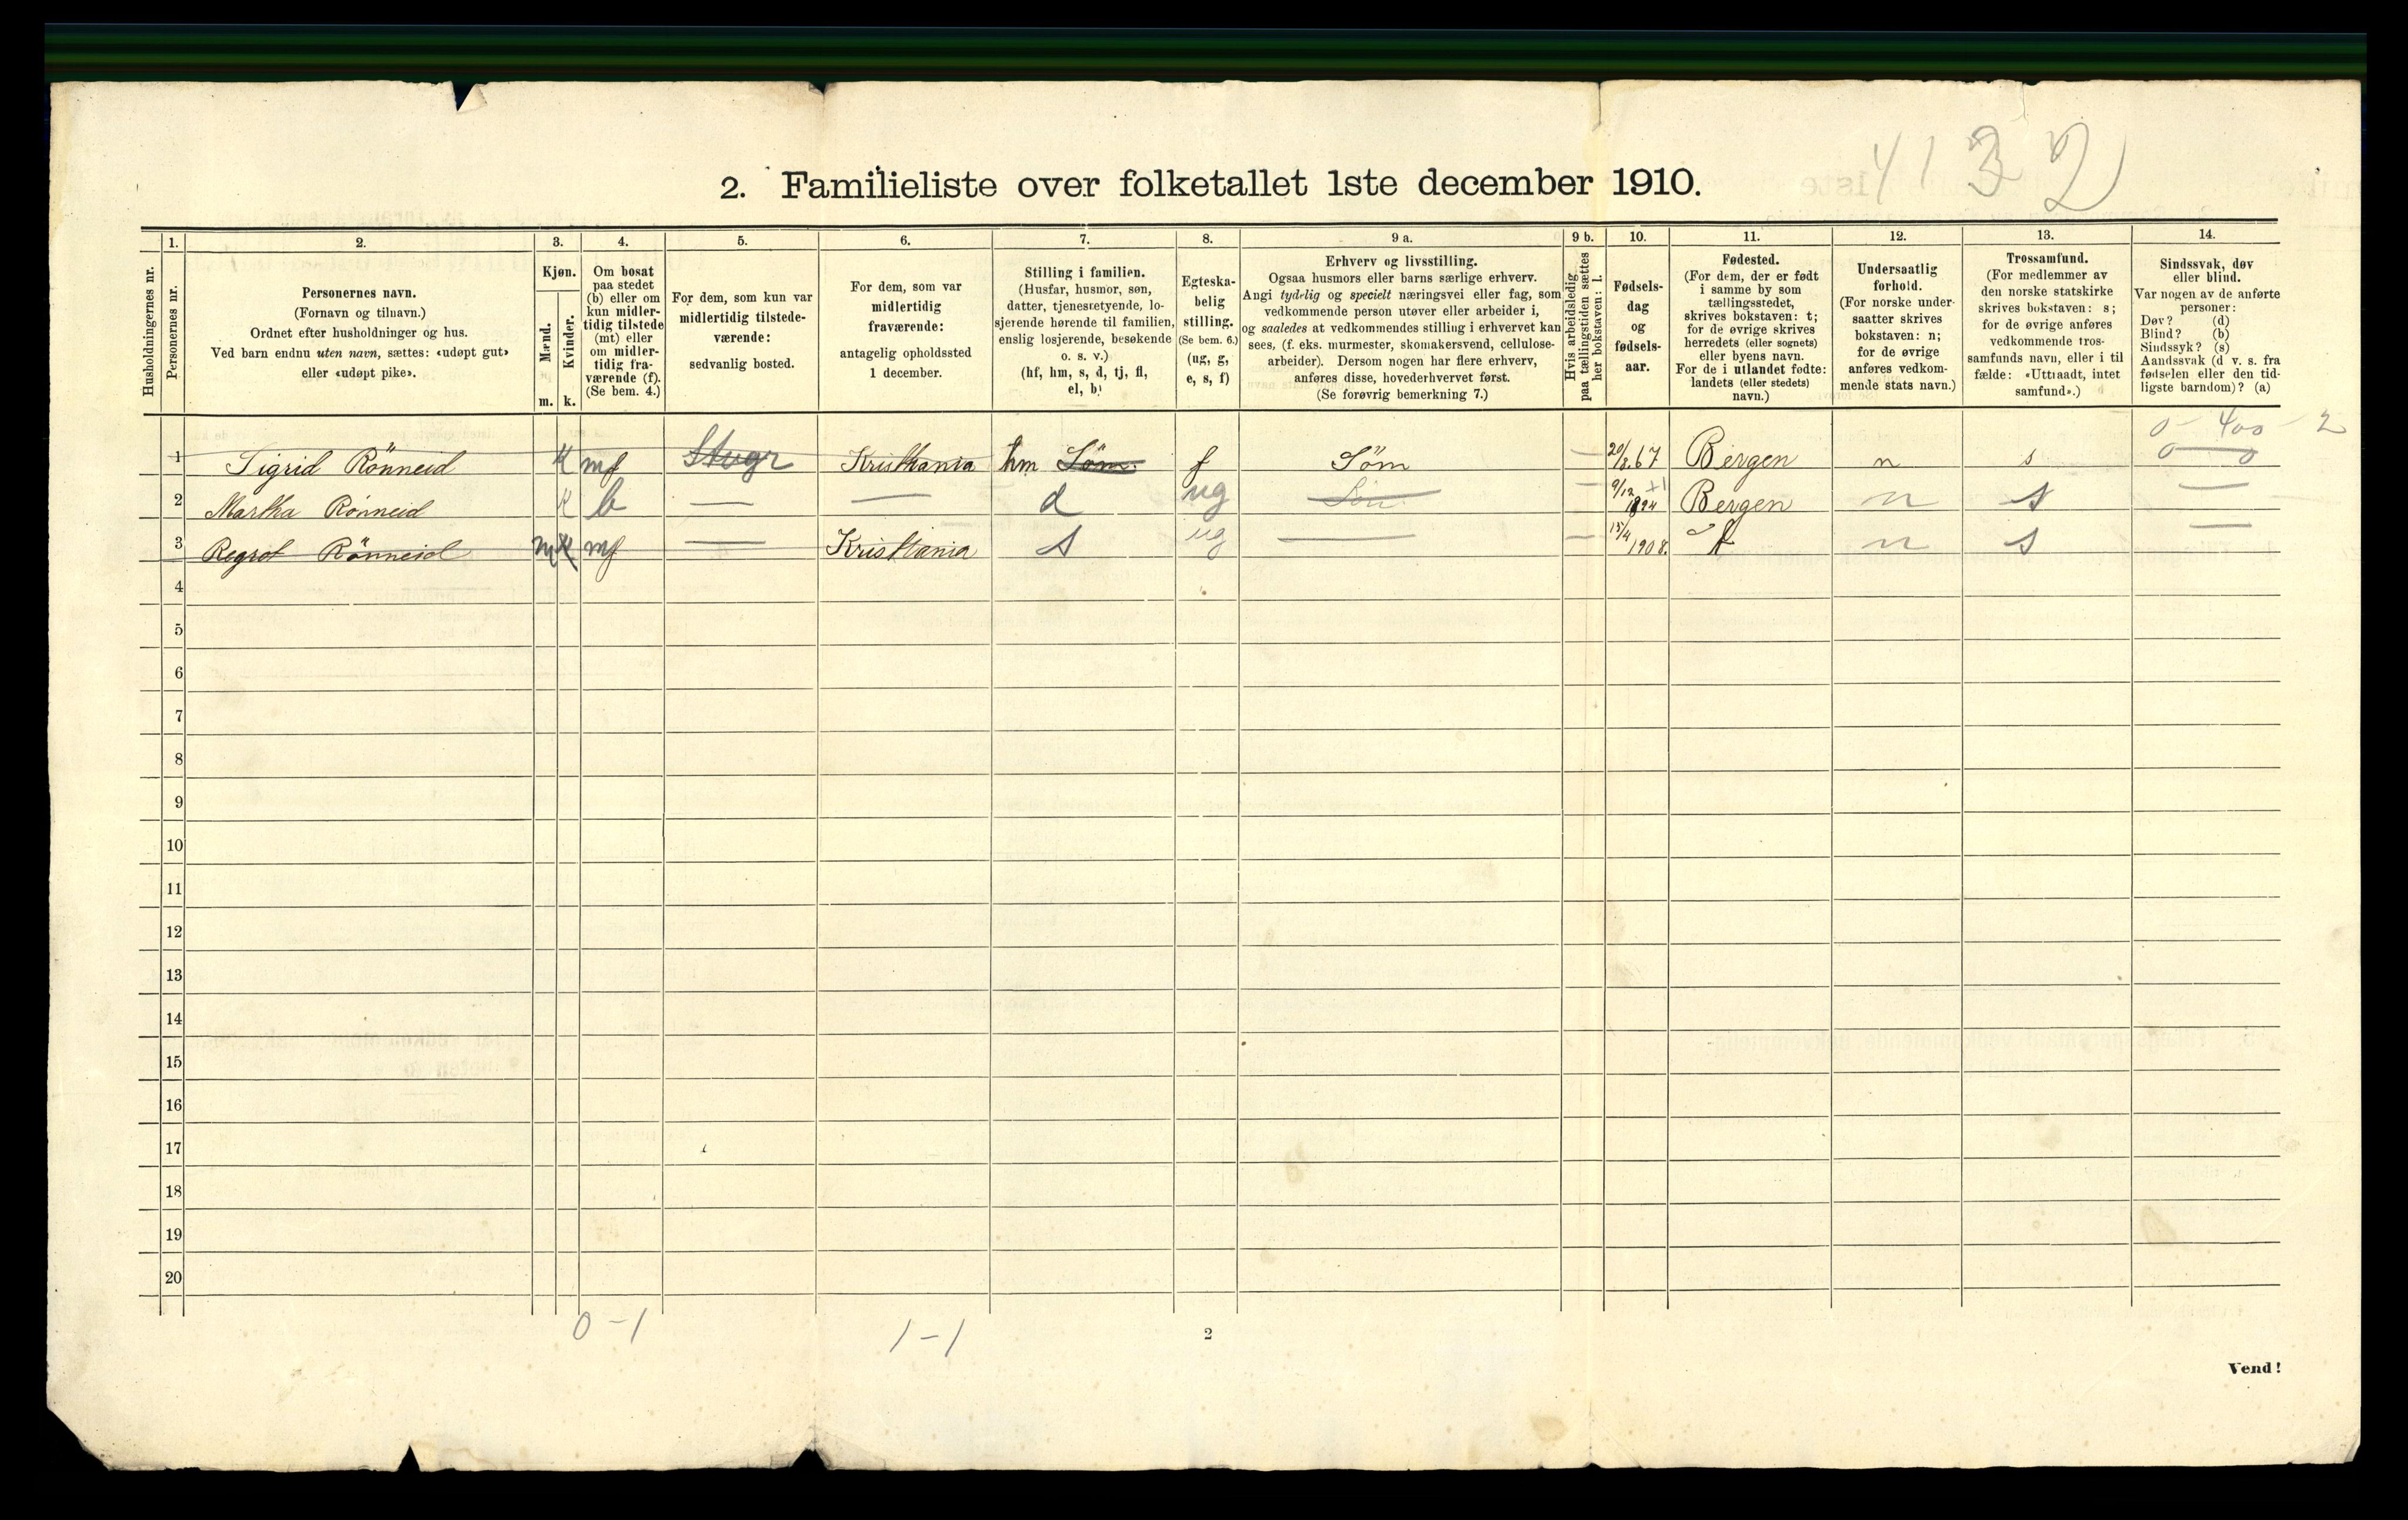 4132
2. Familieliste over folketallet 1ste december 1910.
Husholdningernes nr.
1. Personernes nr.
2. Personernes navn. (Fornavn og tilnavn.) Ordnet efter husholdninger og hus. Ved barn endnu uten navn, sættes: «udøpt gut» eller «udøpt pike».
3. Kjøn. Mænd. m. Kvinder. k.
4. Om bosat paa stedet (b) eller om kun midlertidig tilstede (mt) eller om midlertidig fraværende (f). (Se bem. 4.)
5. For dem, som kun var midlertidig tilstedeværende: sedvanlig bosted.
6. For dem, som var midlertidig fraværende: antagelig opholdssted 1 december.
7. Stilling i familien. (Husfar, husmor, søn, datter, tjenestetyende, losjerende hørende til familien, enslig losjerende, besøkende o. s. v.) (hf, hm, s, d, tj, fl, el, b)
8. Egteskabelig stilling. (Se bem. 6.) (ug, g, e, s, f)
9 a. Erhverv og livsstilling. Ogsaa husmors eller barns særlige erhverv. Angi tydelig og specielt næringsvei eller fag, som vedkommende person utøver eller arbeider i, og saaledes at vedkommendes stilling i erhvervet kan sees, (f. eks. murmester, skomakersvend, cellulosearbeider). Dersom nogen har flere erhverv, anføres disse, hovederhvervet først. (Se forøvrig bemerkning 7.)
9 b. Hvis arbeidsledig paa tællingstiden sættes her bokstaven: l.
10. Fødselsdag og fødselsaar.
11. Fødested. (For dem, der er født i samme by som tællingsstedet, skrives bokstaven: t; for de øvrige skrives herredets (eller sognets) eller byens navn. For de i utlandet fødte: landets (eller stedets) navn.)
12. Undersaatlig forhold. (For norske undersaatter skrives bokstaven: n; for de øvrige anføres vedkommende stats navn.)
13. Trossamfund. (For medlemmer av den norske statskirke skrives bokstaven: s; for de øvrige anføres vedkommende trossamfunds navn, eller i tilfælde: «Uttraadt, intet samfund».)
14. Sindssvak, døv eller blind. Var nogen av de anførte personer: Døv? (d) Blind? (b) Sindssyk? (s) Aandssvak (d v. s. fra fødselen eller den tidligste barndom)? (a)
0 - 400 - 2
1 Sigrid Rönneid K mf Kristiania hm Söm f Söm — 20/8.67 Bergen n s 0 — 0
2 Martha Rönneid K b — — d ug — 9/12 1894 Bergen n s —
3 Regrof Rönneid m K mf — Kristiania s ug — — 15/4 1908. t n s —
4
5
6
7
8
9
10
11
12
13
14
15
16
17
18
19
20
0 - 1
1 - 1
2
Vend!